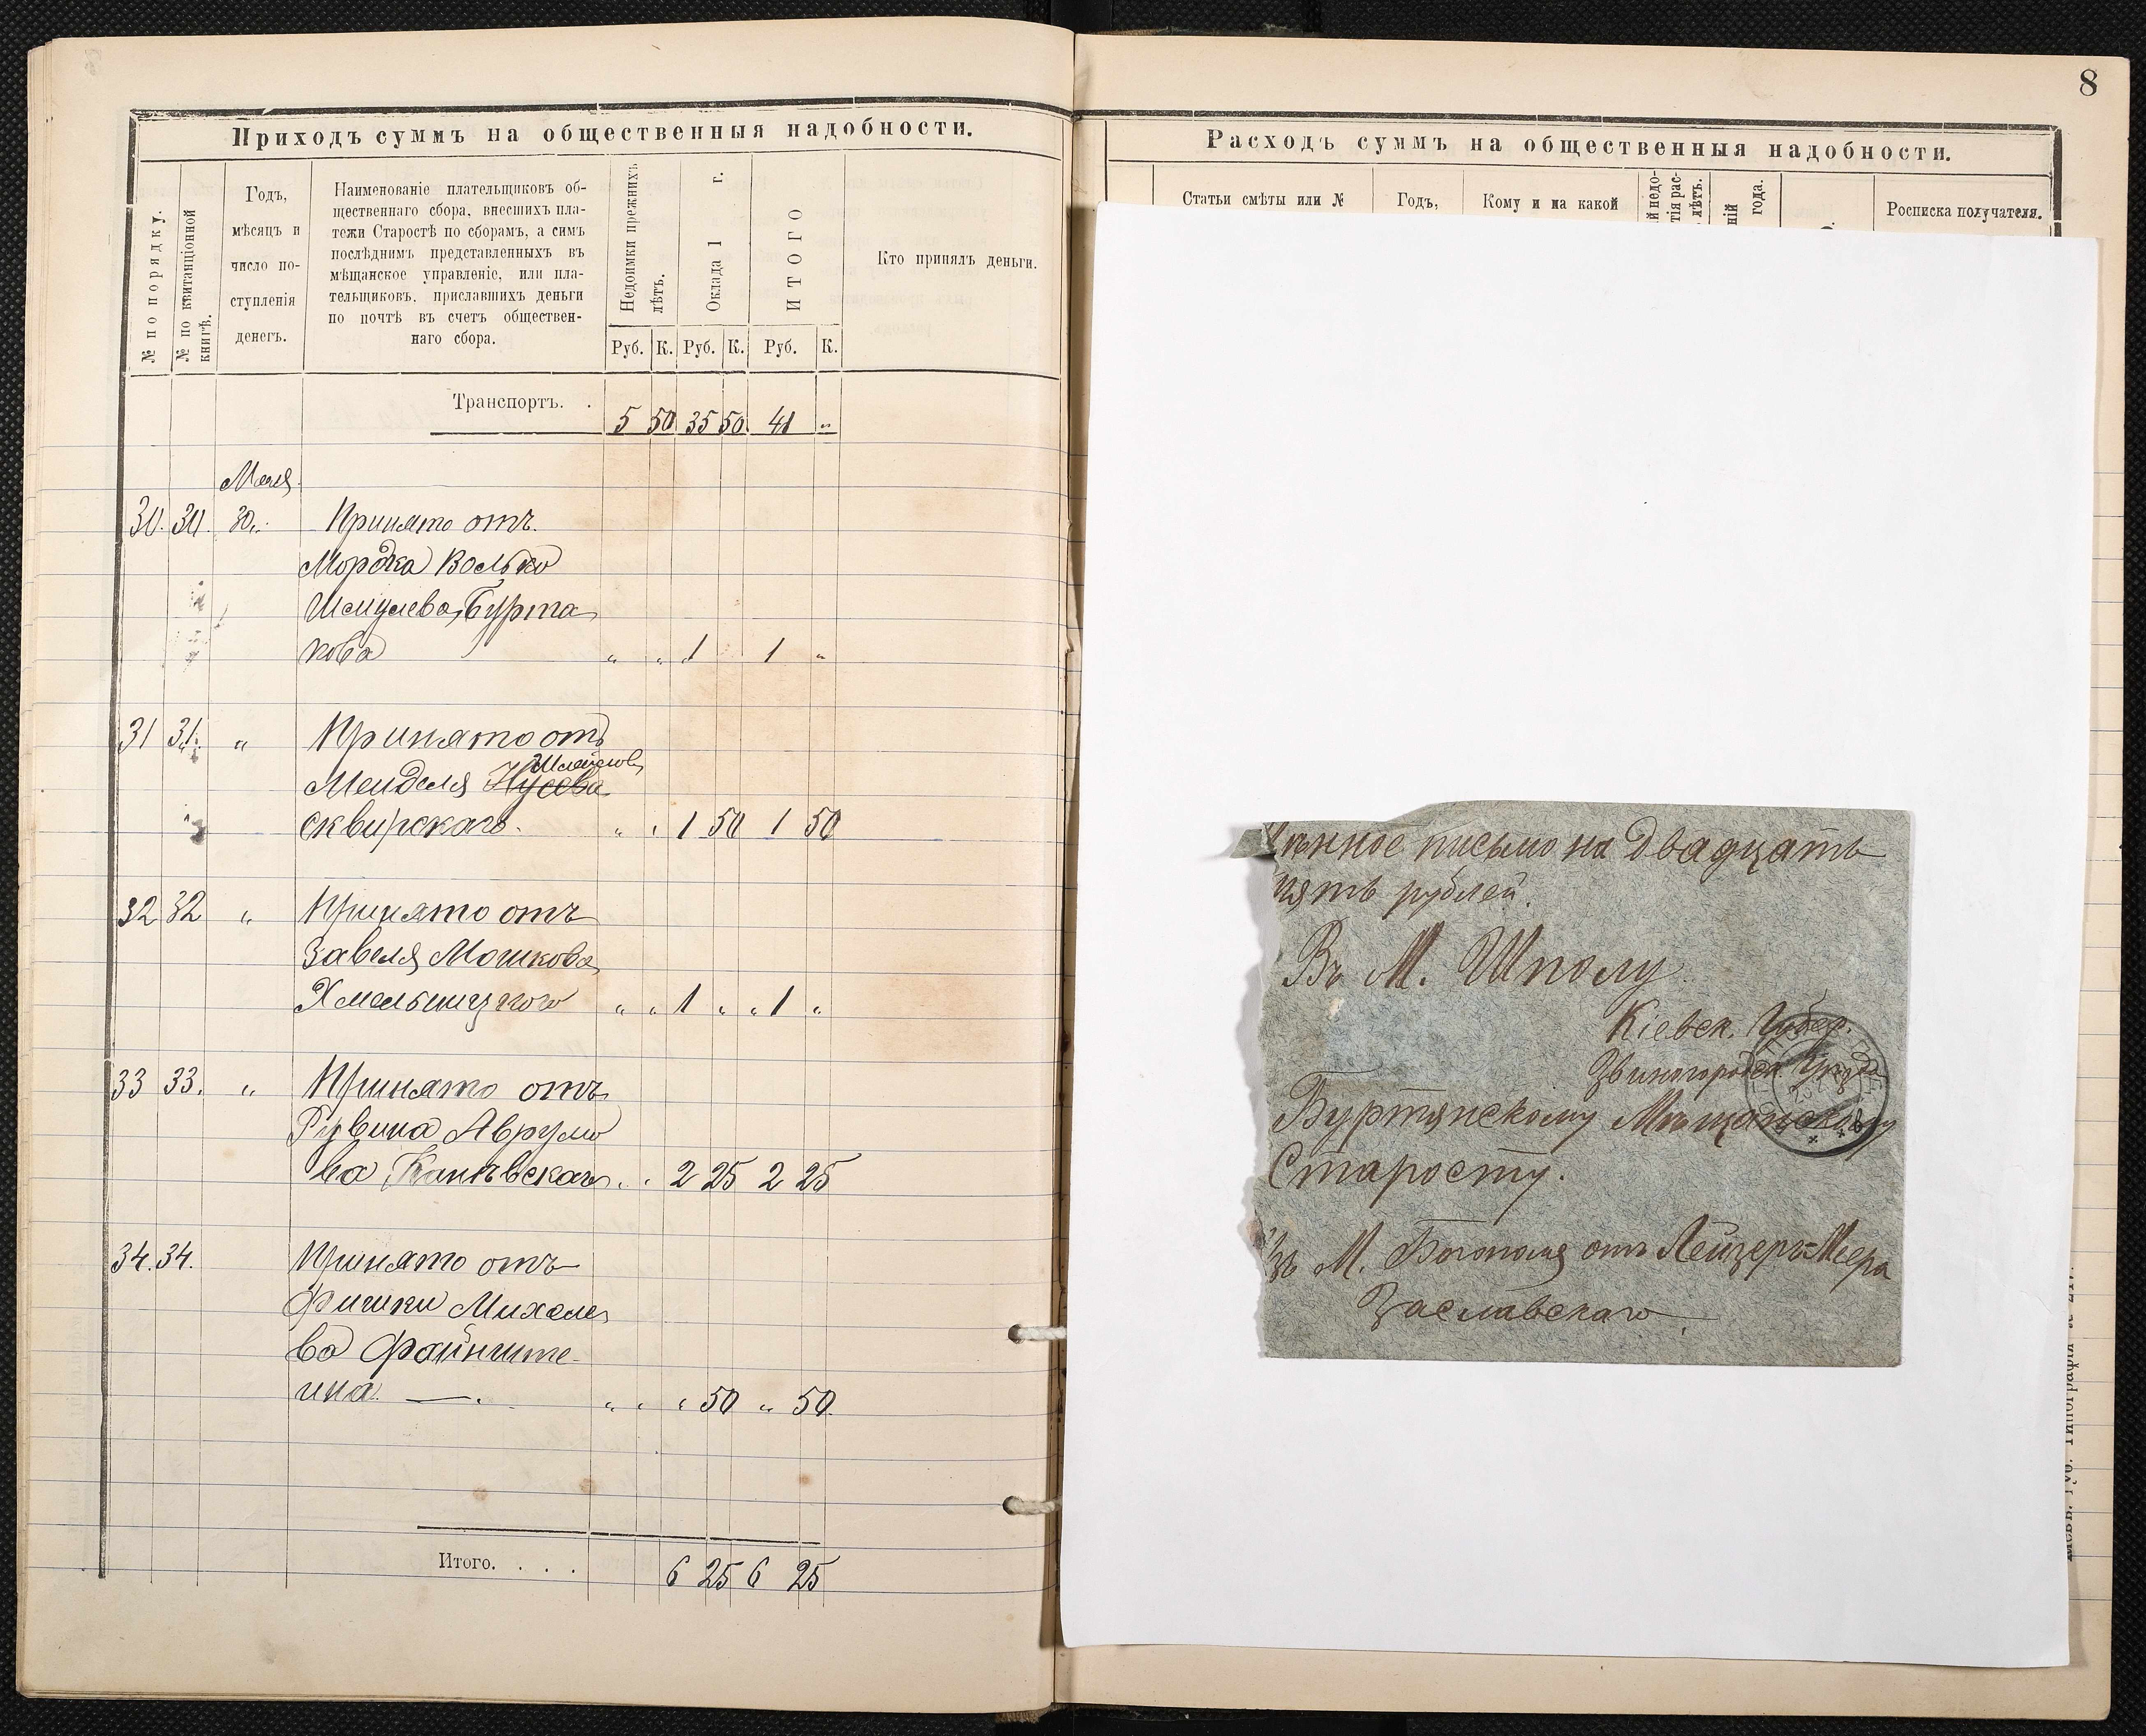 Приходъ суммъ на общественныя надобности.
№ по порядку.
№ по квитанціонной книгѣ.
Годъ,
мѣсяцъ и
число по-
ступленія
денегъ.
Наименованіе плательщиковъ об-
щественнаго сбора, внесшихъ пла-
тежи Старостѣ по сборамъ, а симъ
послѣднимъ представленныхъ въ
мѣщанское управленіе, или пла-
тельщиковъ, приславшихъ деньги
по почтѣ въ счетъ обществен-
наго сбора.
Недоимки прежнихъ лѣтъ.
Оклада 1 г.
ИТОГО
Кто принялъ деньги.
Руб. К. Руб. К. Руб. К.
Транспортъ. . 5 50 35 50 41 "
Мая
30. 30. 30. Принято отъ
Мордка Волько
Шмулева Бурта
кова " " 1 1 "
31 31. " Принято отъ
Менделя Нусева
Сквирскаго. " " 1 50 1 50
32 32 " Принято отъ
Завеля Мошкова
Хмельницкого " " 1 " " 1 "
33 33. " Принято отъ
Рувина Аврумо
ва Каневскаго " " 2 25 2 25
34. 34. Принято отъ
Фишки Михеле
ва Файнште-
ина. —. " " " 50 " 50
Итого. . . . 6 25 6 25
8
Расходъ суммъ на общественныя надобности.
Статьи смѣты или № Годъ, Кому и на какой
года.
Росписка получателя.
ѣнное письмо на двадцать
пять рублей.
Въ М. Шполу
Кіевск. Губер.
Звиногородск Уѣзда
Буртянскому Мѣщанскому
Старосту.
Изъ М. Богополя отъ Лейзеръ-Меера
Заславскаго